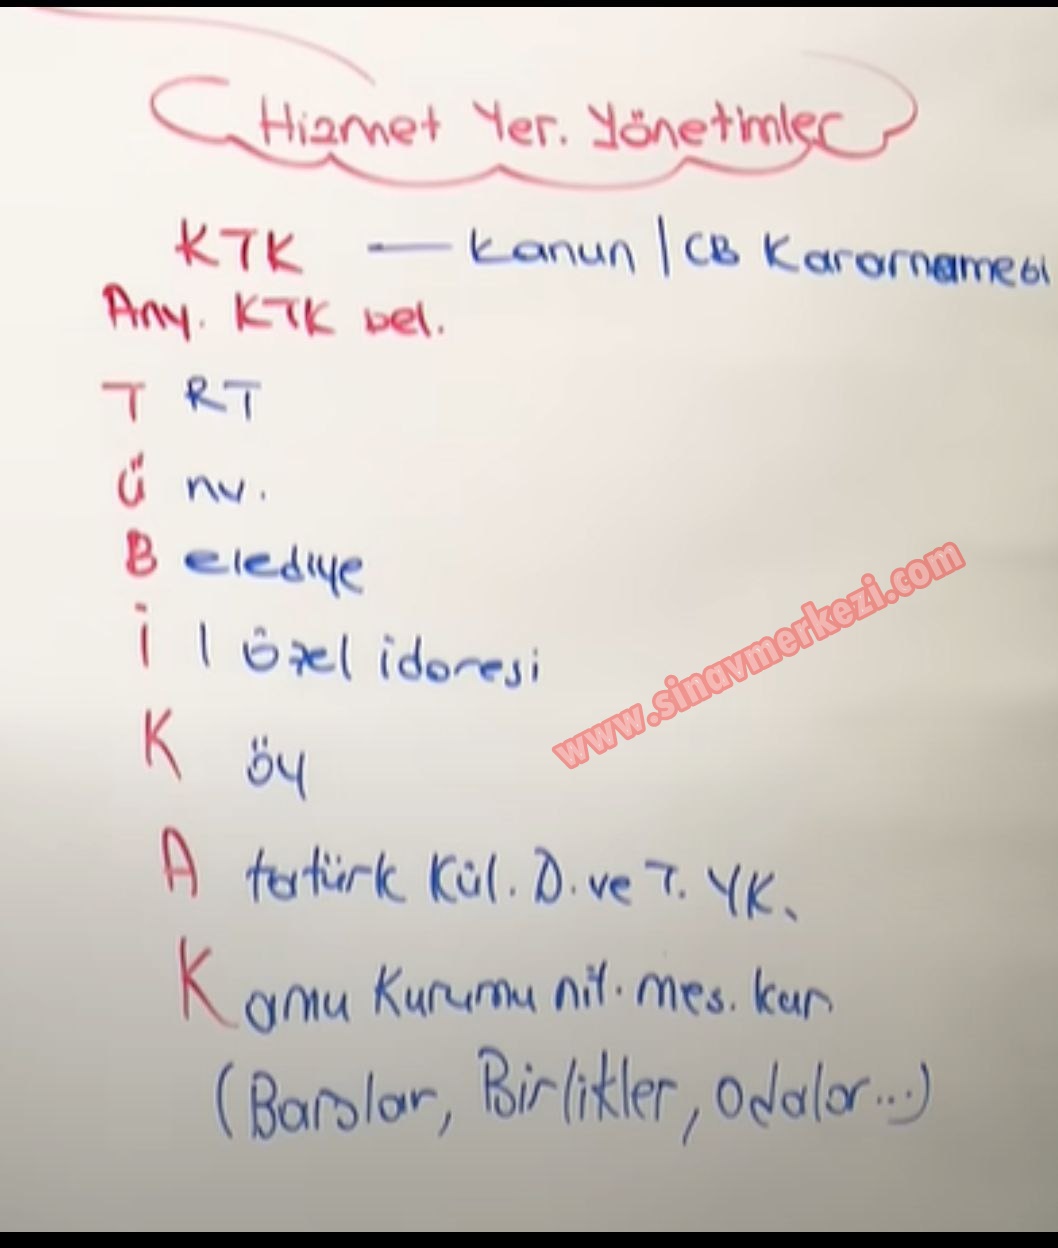 Hizmet Yer. Yönetimler
KTK — Kanun / CB Kararnamesi
Any. KTK bel.
T RT
Ü nv.
B elediye
İ l özel idaresi
K öy
A tatürk Kül. D. ve T. YK.
K amu Kurumu nit. mes. kur.
(Barolar, Birlikler, Odalar...)
www.sinavmerkezi.com